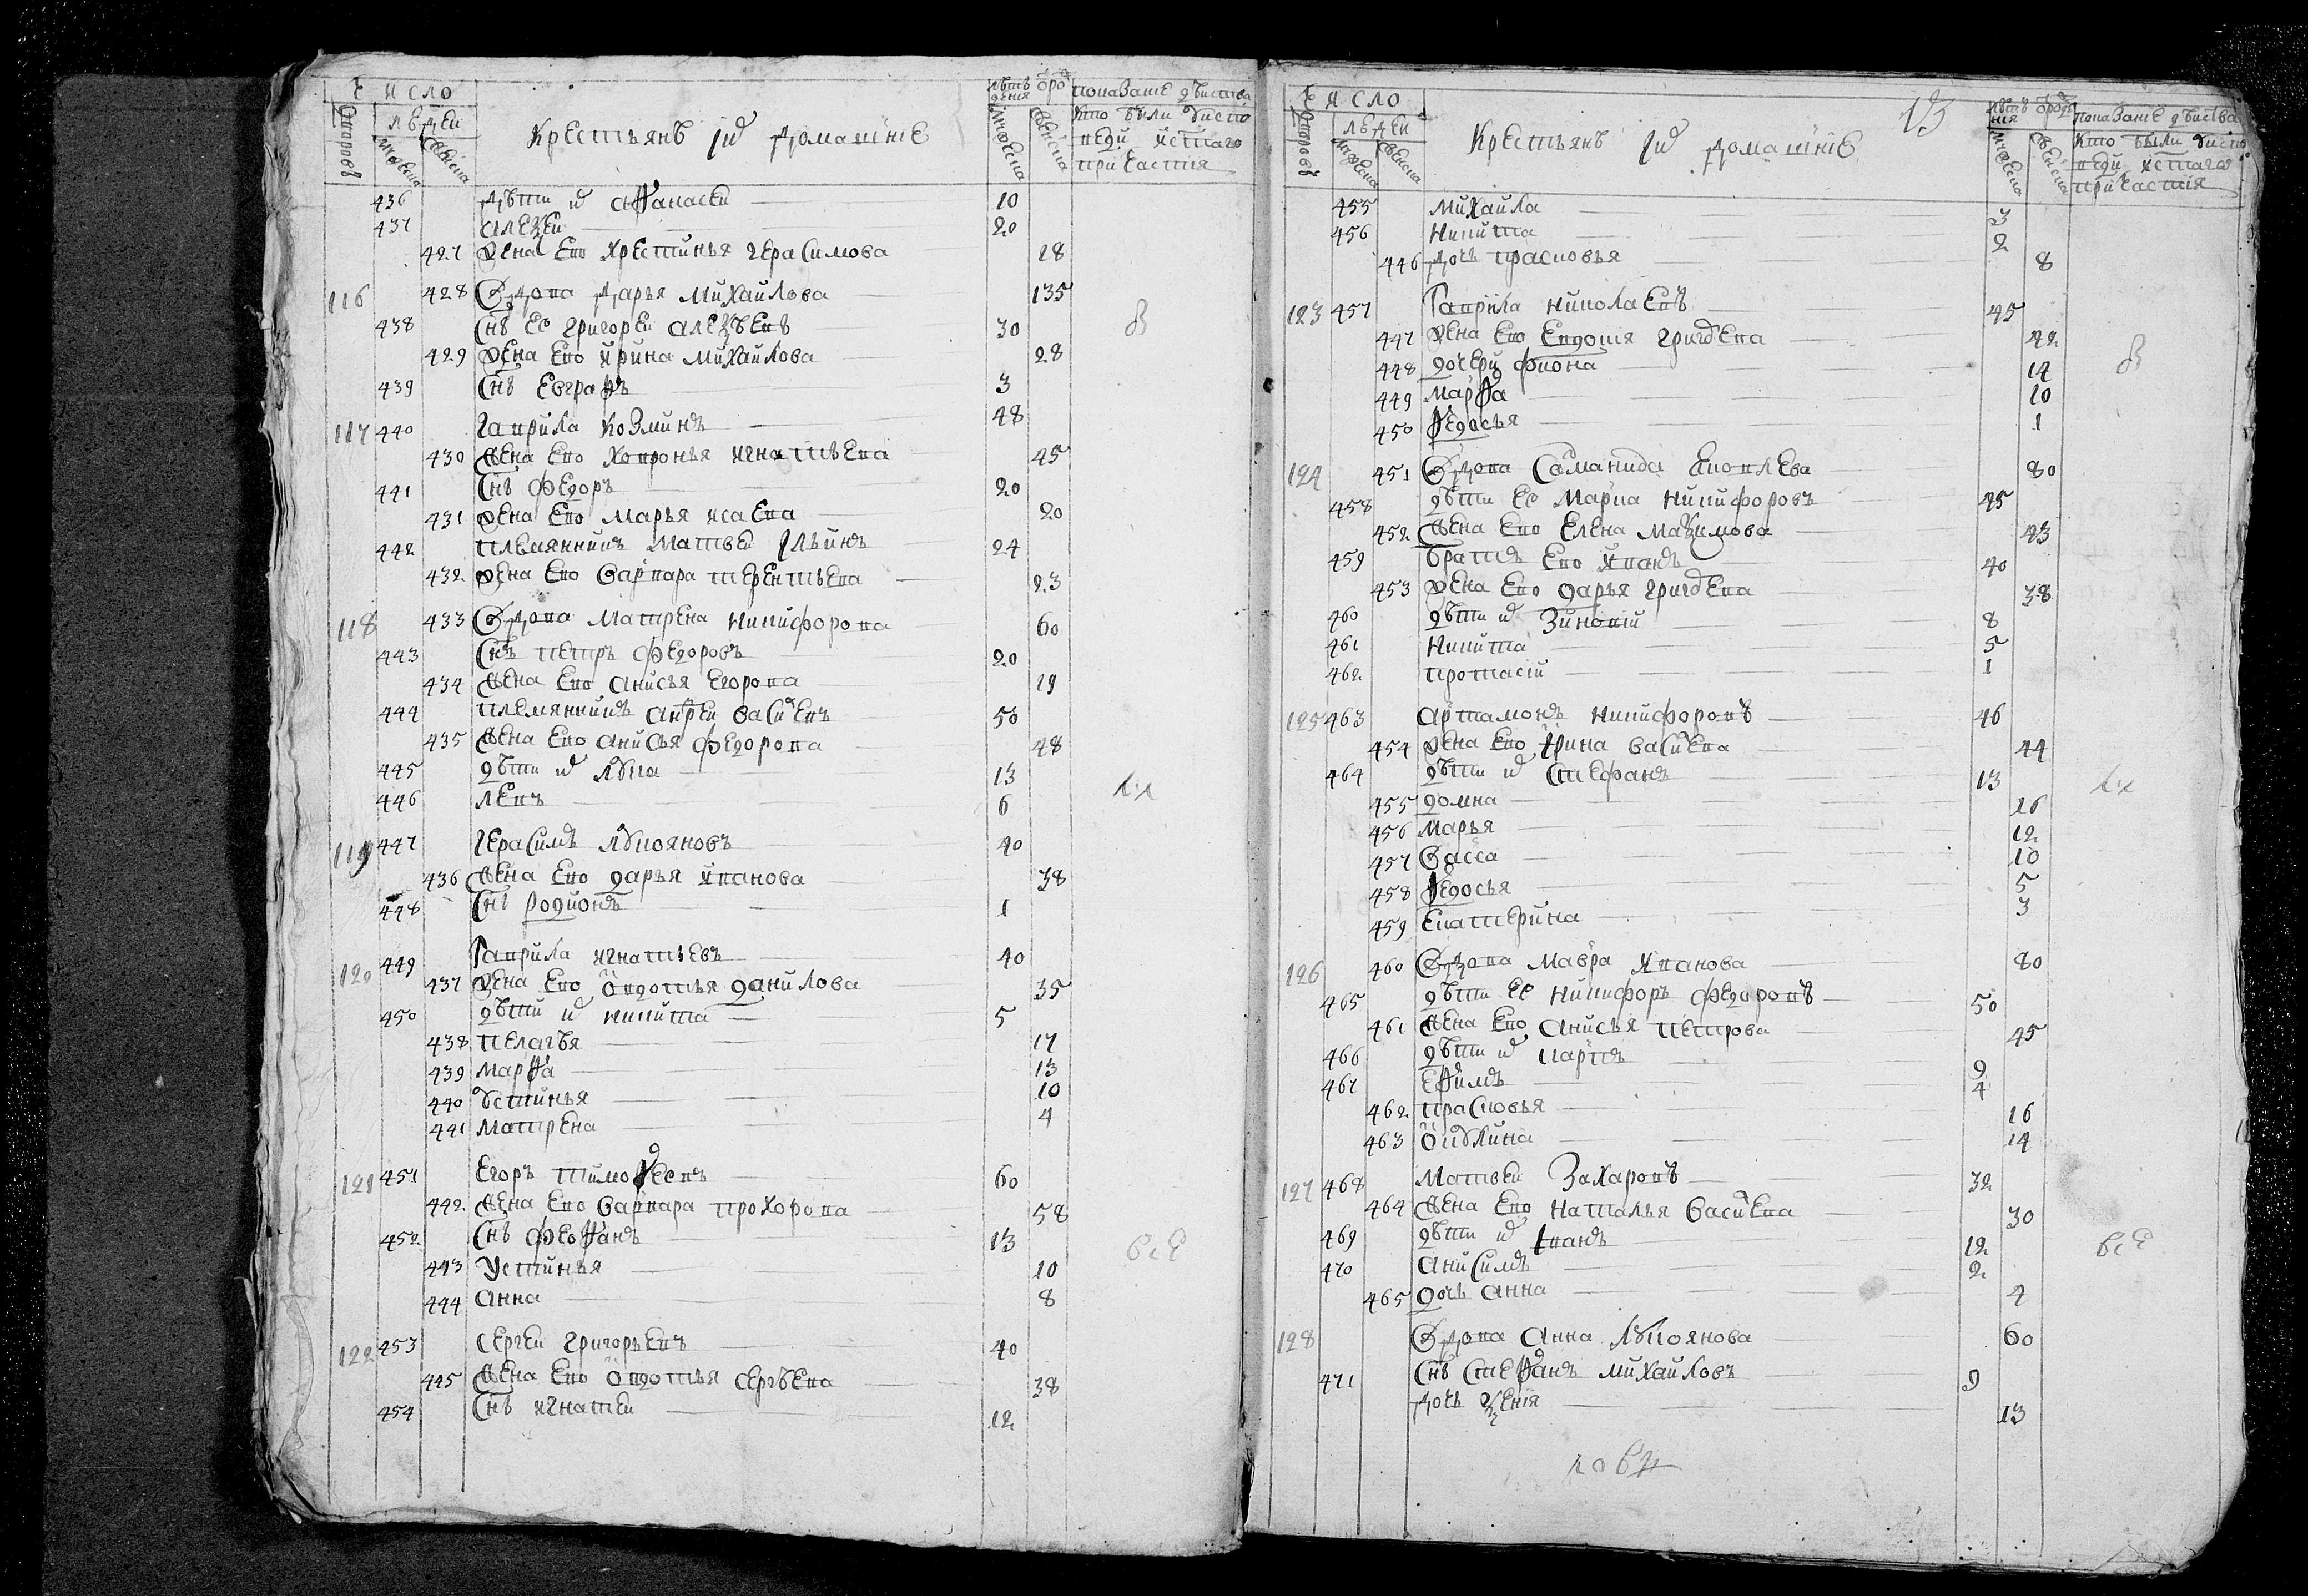 Число
Дворовъ
людей
мужеска
женска
Крестьянъ ихъ домашние
лѣтъ от рождения
мужеска
женска
показание дѣйства
кто были у испо
веди и стаго
причастия
436 дѣти их Афанасеи 10
437 алеѯеи 20
427 жена ево хрестинья герасимова 18
116 428 вдова дарья михаилова 135
438 снъ ее григореи алеѯѣевъ 30
429 жена ево ирина михаилова 28
439 снъ евграфъ 3
117 440 гаврила козминъ 48
430 жена ево ховронья игнатьева 45
441 снъ федоръ 20
431 жена ево марья исаева 20
442 племянникъ матвеи ильинъ 24
432 жена ево варвара терентьева 23
118 433 вдова матрена никифорова 60
443 снъ петръ федоровъ 20
434 жена ево анисья егорова 19
444 племянникъ андреи васильевъ 50
435 жена ево анисья федорова 48
445 дѣти их лука 13
446 левъ 6
119 447 герасимъ лукояновъ 40
436 жена ево дарья иванова 38
448 снъ родионъ 1
120 449 гаврила игнатьевъ 40
437 жена ево овдотья данилова 35
450 дѣти их никита 5
438 пелагѣя 17
439 марѳа 13
440 устинья 10
441 матрена 4
121 451 егоръ тимоѳеевъ 60
442 жена ево варвара прохорова 58
452 снъ феоѳанъ 13
443 устинья 10
444 анна 8
все
122 453 сергеи григорьевъ 40
445 жена ево овдотья сергѣева 38
454 снъ игнатеи 12
13
Число
Дворовъ
людей
мужеска
женска
Крестьянъ ихъ домашние
лѣтъ от рождения
мужеска
женска
показание дѣйства
кто были у испо
веди и стаго
причастия
455 михаила 3
456 никита 2
446 дочь прасковья 8
123 457 гаврила николаевъ 45
447 жена ево евдокия григорьева 42
448 дочери фиона 14
449 марѳа 10
450 ѳедосья 1
124 451 вдова саманида 80
458 дѣти ее марка никифоровъ 45
452 жена ево елена маѯимова 43
459 братъ ево иванъ 40
453 жена ево дарья григорьева 38
460 дѣти их зиновий 8
461 никита 5
462 протасий 1
125 463 артамонъ никифоровъ 46
454 жена ево ирина васильева 44
464 дѣти их стефанъ 13
455 домна 16
456 марья 12
457 васса 10
458 ѳедосья 5
459 екатерина 3
126 460 вдова мавра иванова 80
465 дѣти ее никифоръ федоровъ 50
461 жена ево анисья петрова 45
466 дѣти их карпъ 9
467 еѳимъ 4
462 прасковья 16
463 окулина 14
127 468 матвеи захаровъ 32
464 жена ево наталья васильева 30
469 дѣти их иванъ 12
470 анисимъ 2
465 дочь анна 4
все
128 вдова анна лукоянова 60
471 снъ стеѳанъ михаиловъ 9
дочь ѯения 13